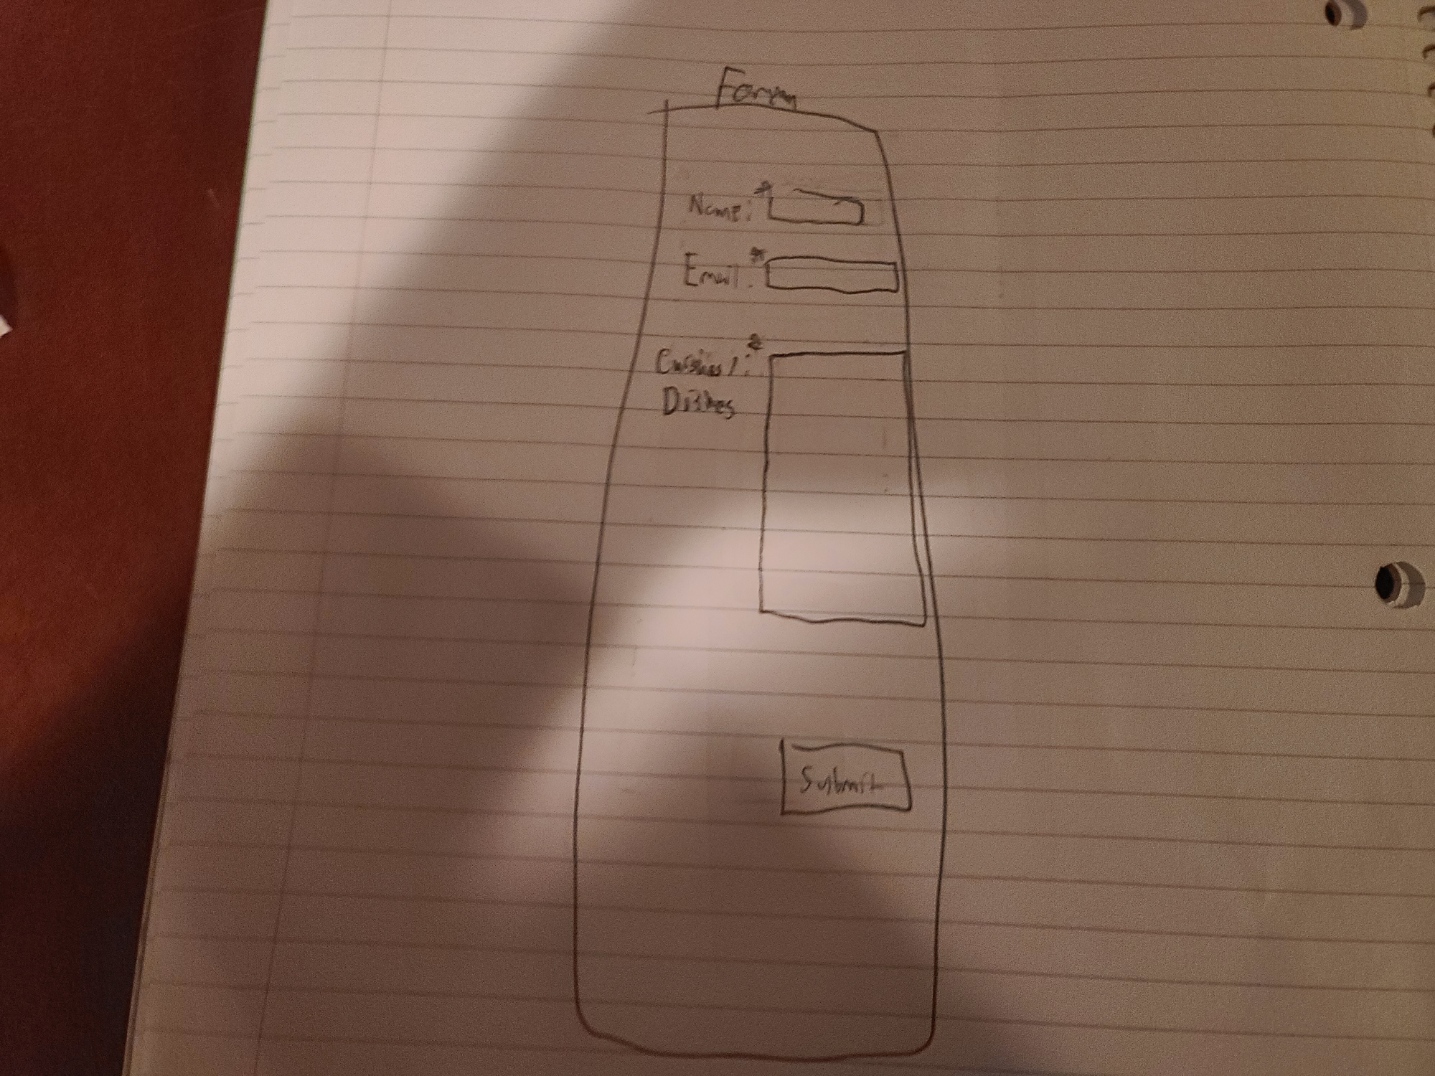 Form
Name: *
Email: *
Cuisines/: *
Dishes
Submit